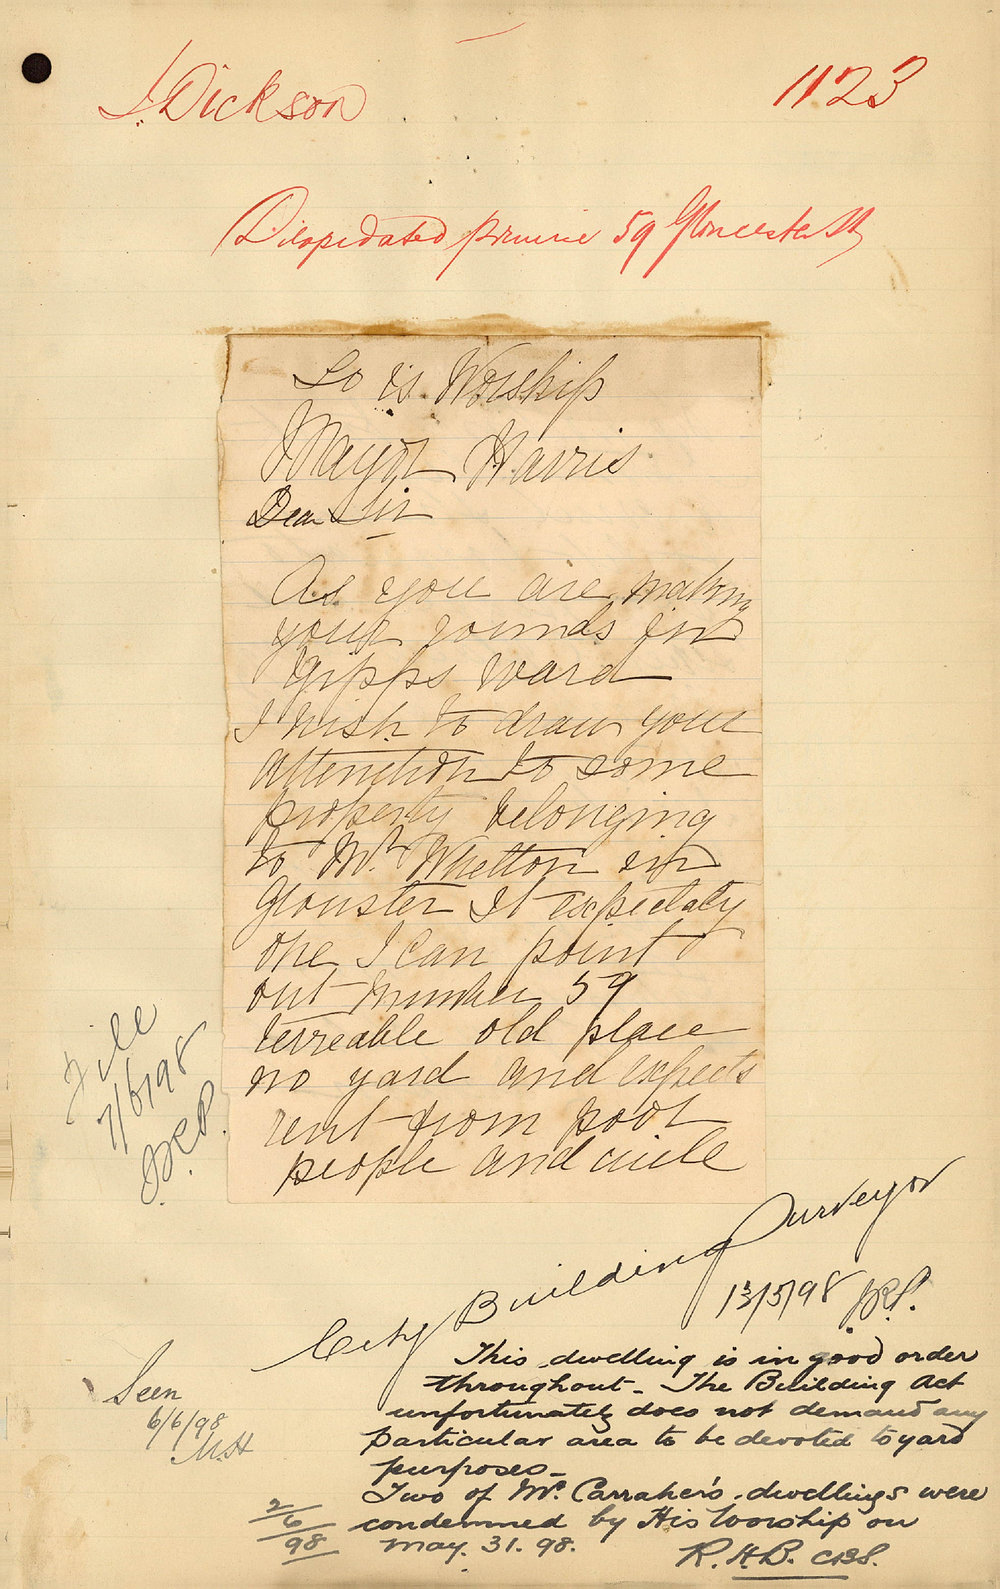 J. Dickson
1123
Dilapidated premise 59 Gloucester St
To is Worship
Mayor Harris
Dear Sir
As you are making
your rounds in
Gipps Ward
I wish to draw your
attenction to some
property belonging
to Mr. Whetton in
Glouster St expectaly
one I can point
out Number 59
terreable old place
no yard and expects
rent from poor
people and
File
7/6/98
City Building Surveyor
13/5/98
This dwelling is in good order
throughout - The Building Act
unfortunately does not demand any
particular area to be devoted to yard
purposes -
Two of Mr. Carraher's dwellings were
condemned by His Worship on
May. 31. 98.
R.H.B. CBS.
2/6/98
Seen
6/6/98
M.H